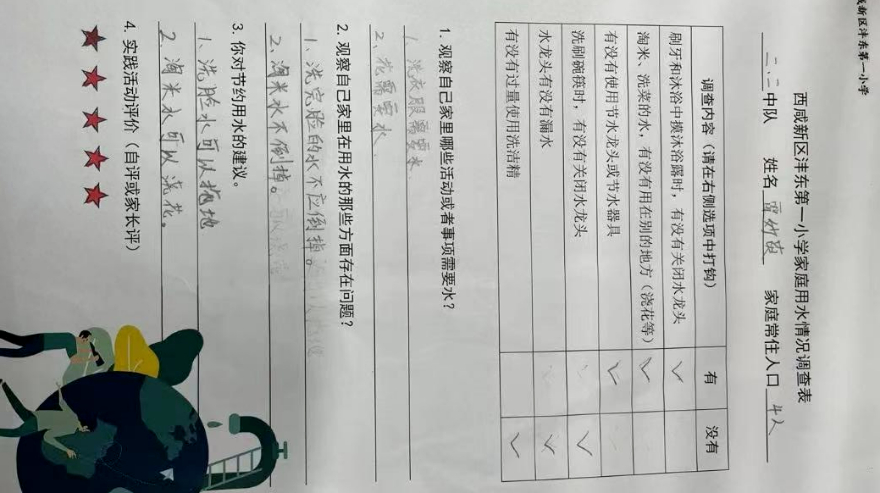 新区沣东第一小学
西咸新区沣东第一小学家庭用水情况调查表
二.二中队 姓名 家庭常住人口 4人
调查内容（请在右侧选项中打钩） 有 没有
刷牙和沐浴中摸沐浴露时，有没有关闭水龙头 ✓
淘米、洗菜的水，有没有用在别的地方（浇花等） ✓
有没有使用节水龙头或节水器具 ✓
洗刷碗筷时，有没有关闭水龙头 ✓
水龙头有没有漏水 ✓
有没有过量使用洗洁精 ✓
1. 观察自己家里哪些活动或者事项需要水？
1、洗衣服需要水
2、花需要水
2. 观察自己家里在用水的那些方面存在问题？
1、洗完脸的水不应倒掉。
2、淘米水不倒掉。
3. 你对节约用水的建议。
1、洗脸水可以拖地
2、淘米水可以浇花。
4. 实践活动评价（自评或家长评）